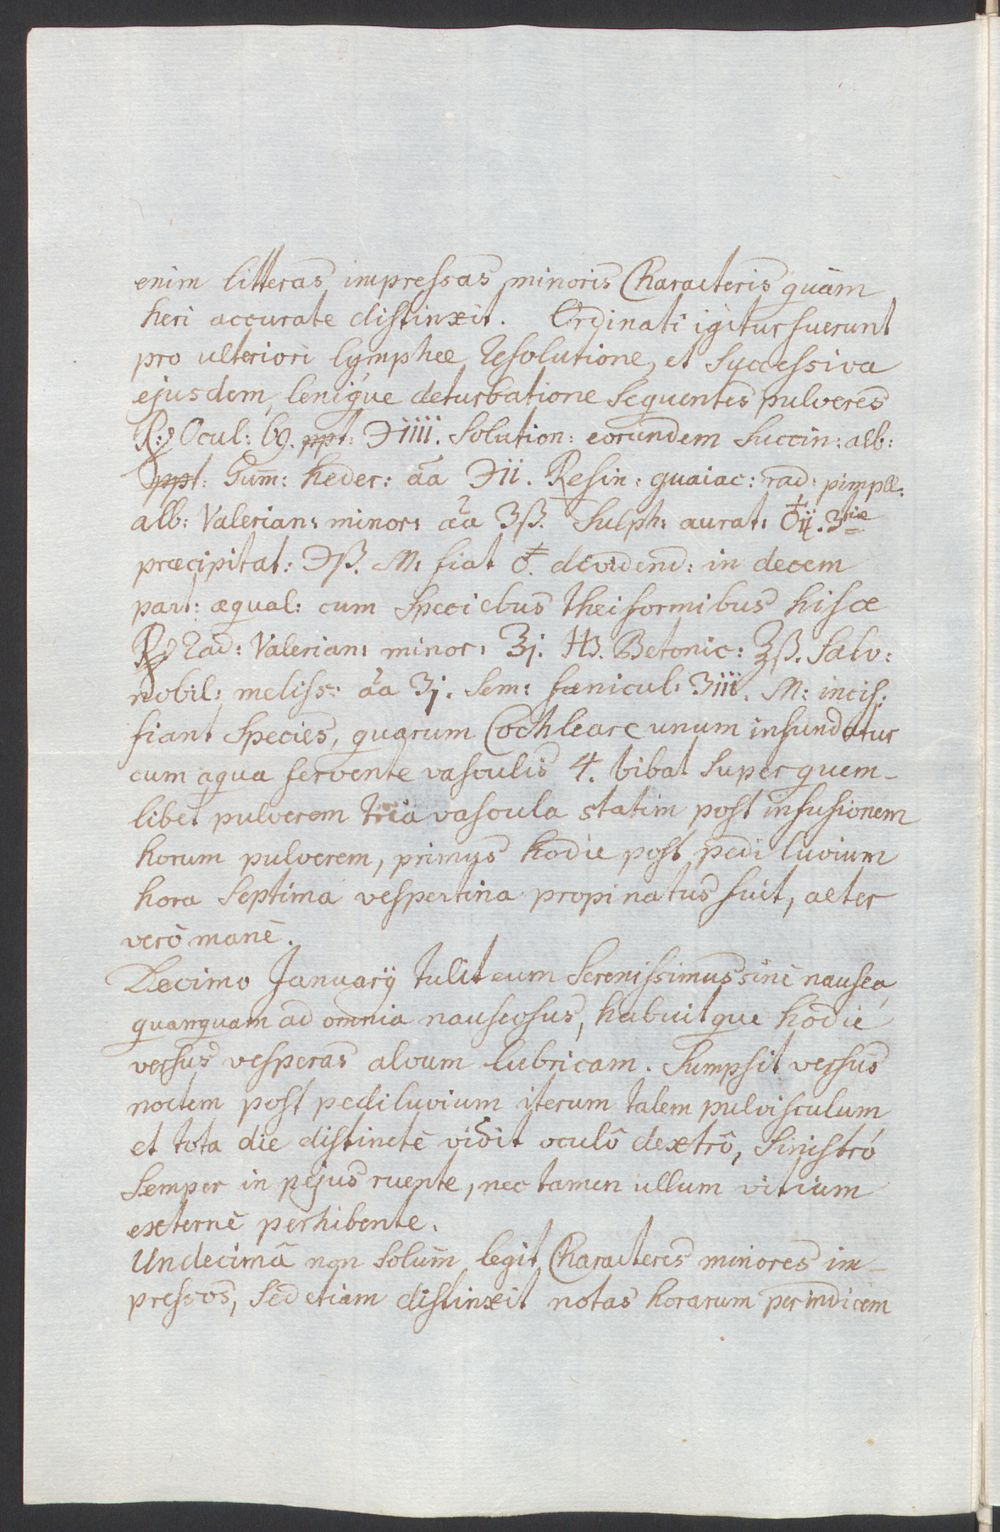 enim litteras impressas minoris Characteris quàm
heri accurate distinxit. Ordinati igitur fuerunt
pro ulteriori lymphæ resolutione, et successiva
ejusdem, lenique deturbatione sequentes pulveres
℞ Ocul: 69. ppt: ℈iiii. Solution: eorundem Succin: alb:
ppt: Gum̄: heder: āa ℈ii. Resin: guaiac: rad: pimpll:
alb: Valerian: minor: āa ʒß. Sulph: aurat: ♁ij. 3tiæ
præcipitat: ℈ß. M: fiat dividend: in decem
part: æqual: cum Speciebus theiformibus hisce
℞ Rad: Valerian: minor: ʒj. Hb. Betonic: ʒß. Salv:
nobil: meliss: āa ʒj. Sem: fœnicul: ʒiii. M: incis:
fiant Species, quarum Cochleare unum infundatur
cum aqua fervente vasculis 4. bibat super quem-
libet pulverem tria vascula statim post infusionem
horum pulverem, primus hodie post pediluvium
hora septima vespertina propinatus fuit, alter
verò manè.
Decimo Januarÿ tulit eum Serenissimus sinè nausea,
quamquam ad omnia nauseosus, habuitque hodie
versus vesperas alvum lubricam. Sumpsit versus
noctem post pediluvium iterum talem pulvisculum
et tota die distinctè vidit oculô dextrô, Sinistró
semper in pejus ruente, nec tamen ullum vitium
externè perhibente.
Undecimâ non solum̄ legit Characteres minores im-
pressos, sed etiam distinxit notas horarum per indicem